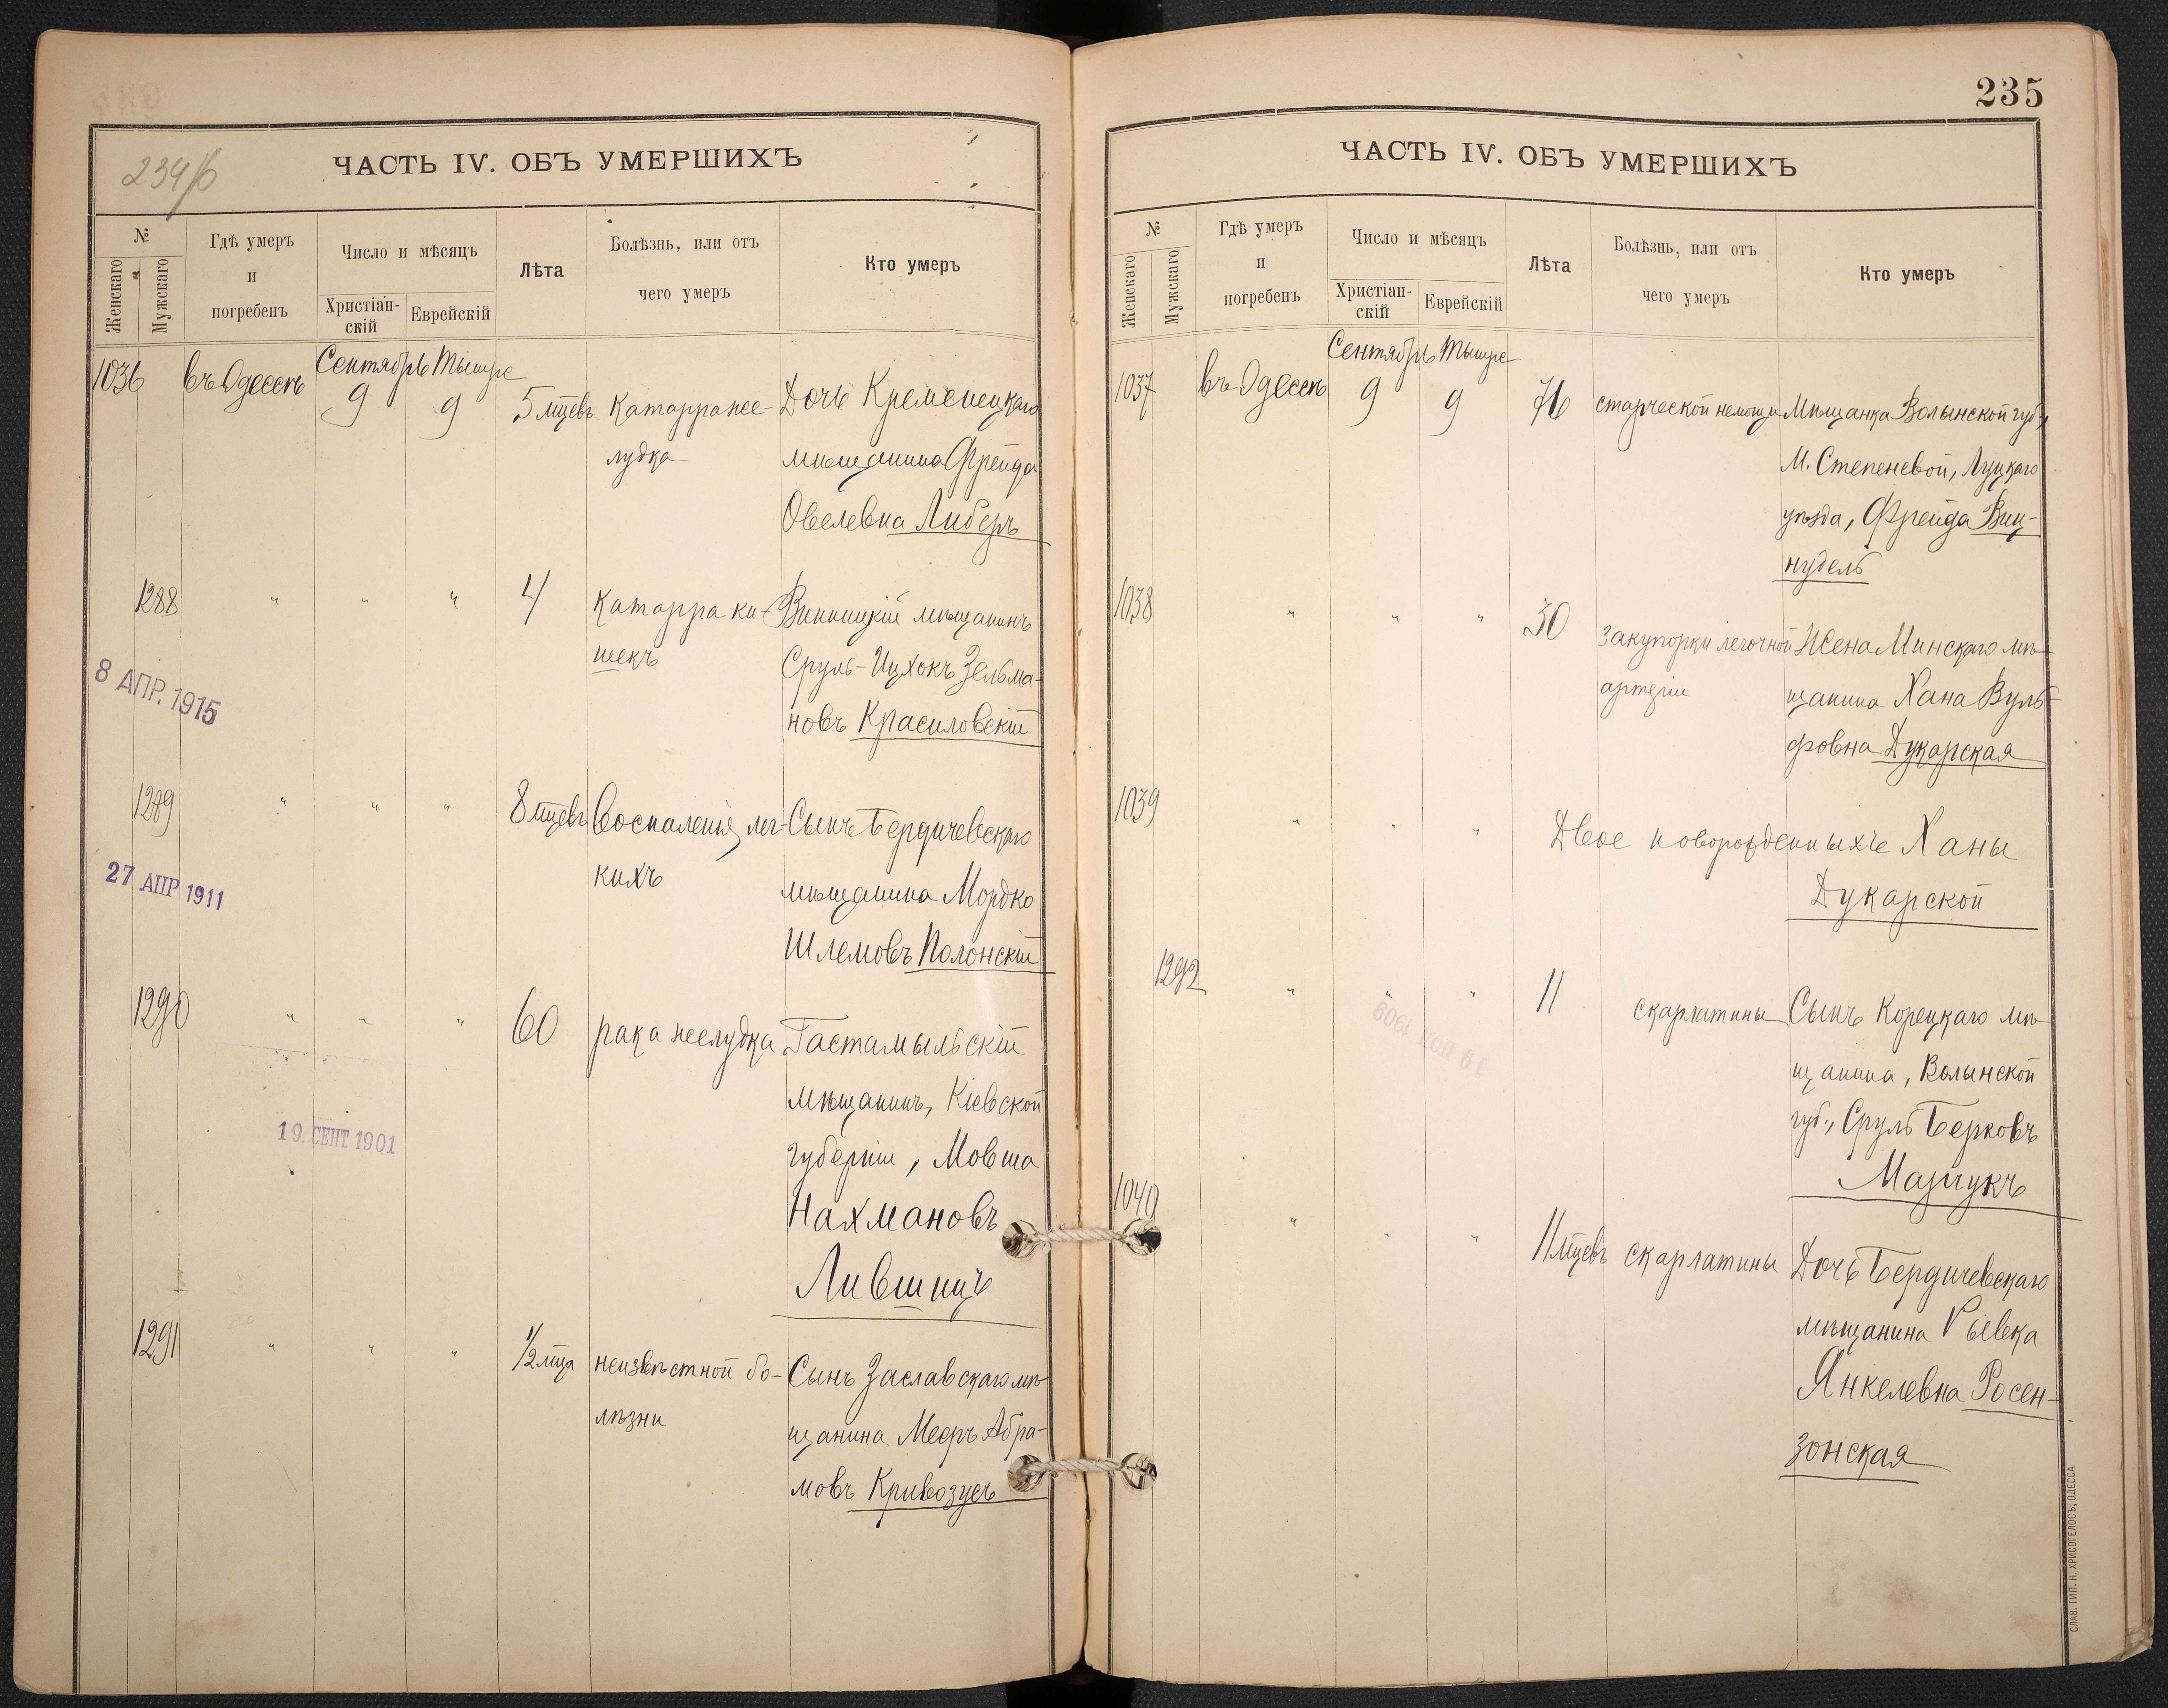 234/б
ЧАСТЬ IV. ОБЪ УМЕРШИХЪ
№
Женскаго
Мужскаго
Гдѣ умеръ
и
погребенъ
Число и мѣсяцъ
Христіан-
скій
Еврейскій
Лѣта
Болѣзнь, или отъ
чего умеръ
Кто умеръ
1036
въ Одессѣ
Сентябрь
9
Тышре
9
5 мцевъ
Катарра же-
лудка
Дочь Кременецкаго
мѣщанина Фрейда
Овелевна Либеръ
1288
" " "
4
Катарра ки-
шекъ
Винницкій мѣщанинъ
Сруль-Ицхокъ Зельма-
новъ Красиловскій
8 АПР. 1915
1289
" " "
8 мцевъ
Воспаленія лег-
кихъ
Сынъ Бердичевскаго
мѣщанина Мордко
Шлемовъ Полонскій
27 АПР 1911
1290
" " "
60
рака желудка
Гастамыльскій
мѣщанинъ, Кіевской
губерніи, Мовша
Нахмановъ
Лившицъ
19. СЕНТ. 1901
1291
" " "
1/2 мца
неизвѣстной бо-
лѣзни
Сынъ Заславскаго мѣ-
щанина Мееръ Абра-
мовъ Кривозусъ
235
ЧАСТЬ IV. ОБЪ УМЕРШИХЪ
№
Женскаго
Мужскаго
Гдѣ умеръ
и
погребенъ
Число и мѣсяцъ
Христіан-
скій
Еврейскій
Лѣта
Болѣзнь, или отъ
чего умеръ
Кто умеръ
1037
въ Одессѣ
Сентябрь
9
Тышре
9
76
старческой немощи
Мѣщанка Волынской губ.,
М. Степеневой, Луцкаго
уѣзда, Фрейда Виц-
нудель
1038
" " "
30
закупорки легочной
артеріи
Жена Минскаго мѣ-
щанина Хана Вуль-
фовна Дукарская
1039
" " "
Двое новорожденныхъ Ханы
Дукарской
1292
" " "
11
скарлатины
Сынъ Корецкаго мѣ-
щанина, Волынской
губ., Сруль Берковъ
Марчукъ
1040
" " "
11 мцевъ
скарлатины
Дочь Бердичевскаго
мѣщанина Ривка
Янкелевна Росен-
зонская
СЛАВ. ТИП. Н. ХРИСОГЕЛОСЪ, ОДЕССА